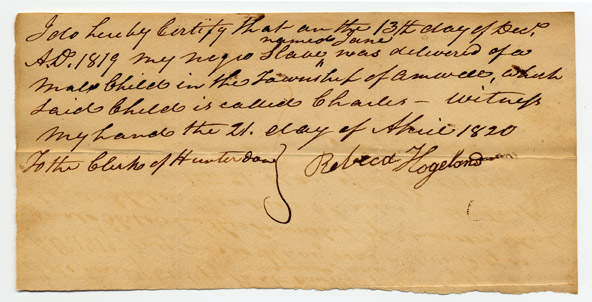 I do hereby Certify that on the 13th day of Decr
A.D. 1819 my negro Slave named Jane was delivered of a
Male Child in the Township of Amwell, which
said Child is called Charles – Witness
My hand the 21. day of April 1820
To the Clerk of Hunterdon } Rebecca Hogeland